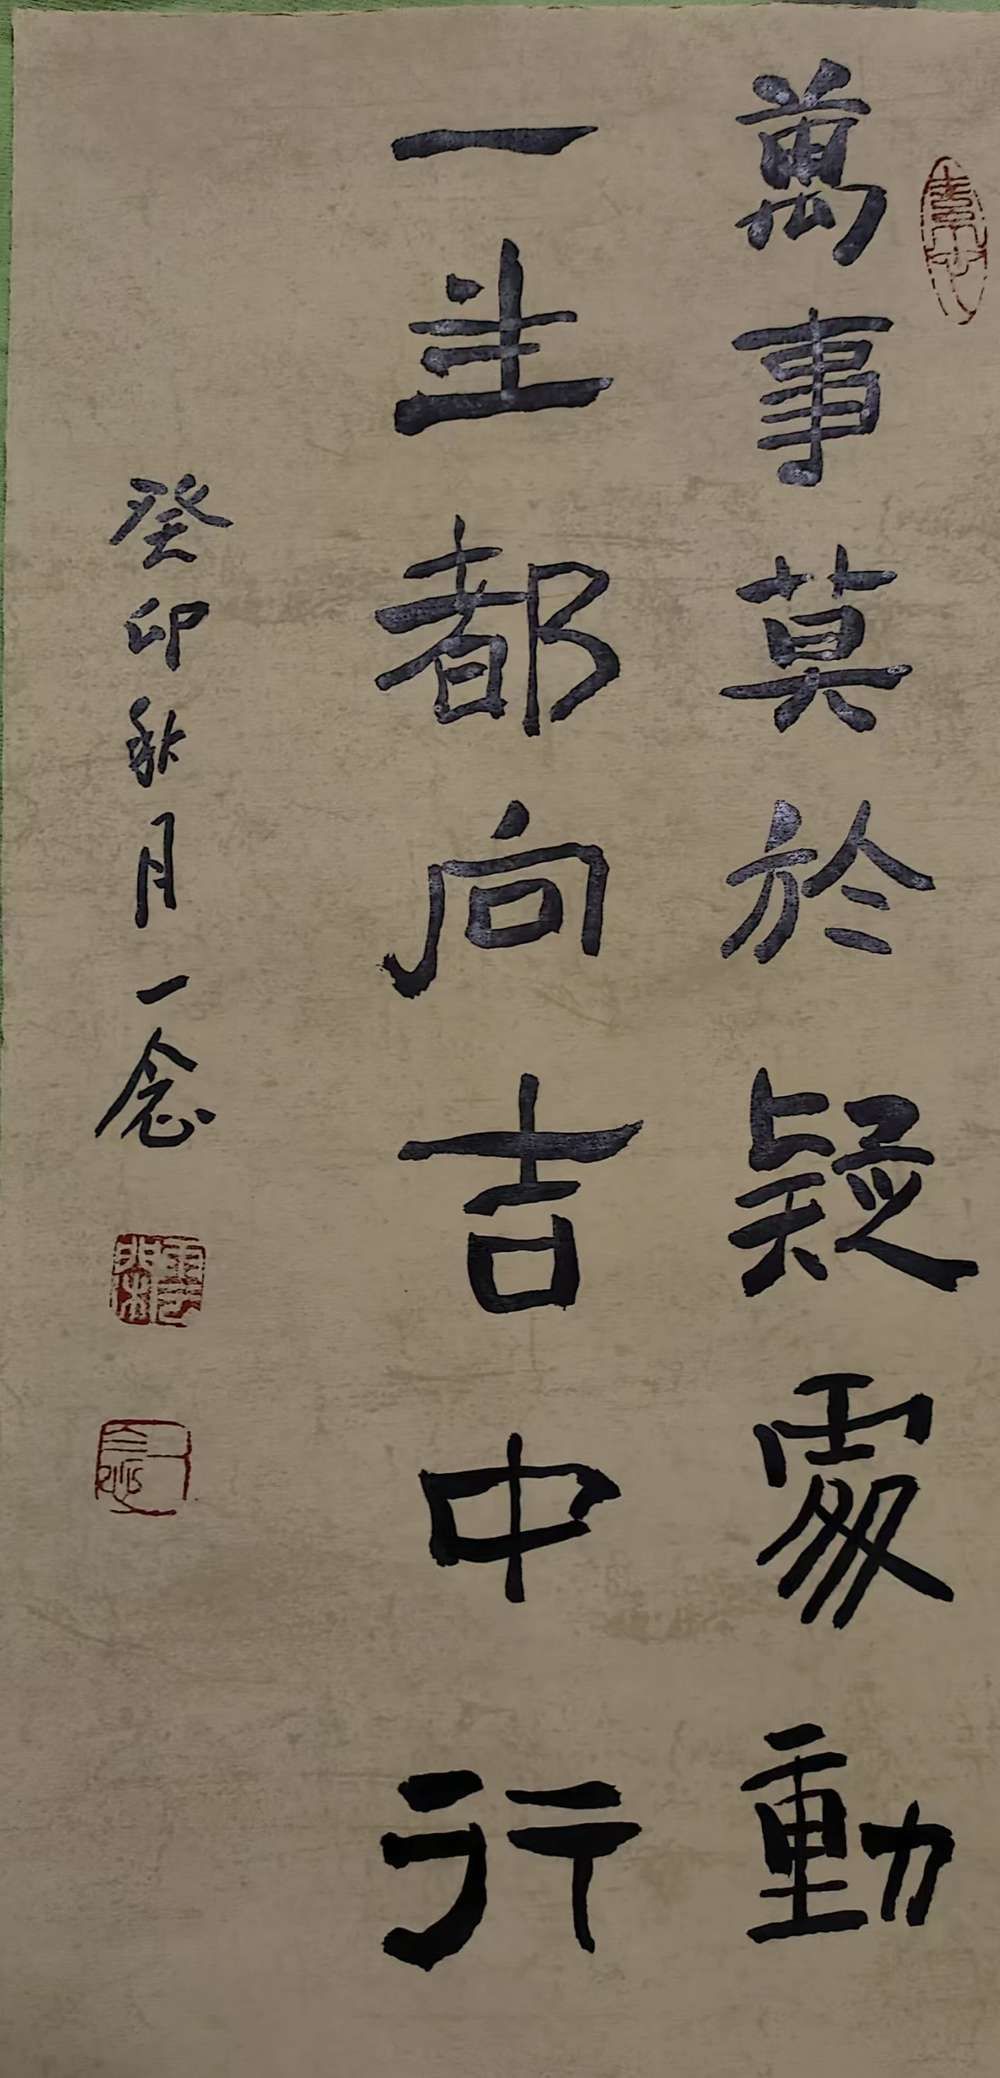 萬事莫於疑處動
一生都向吉中行
癸卯秋月一念